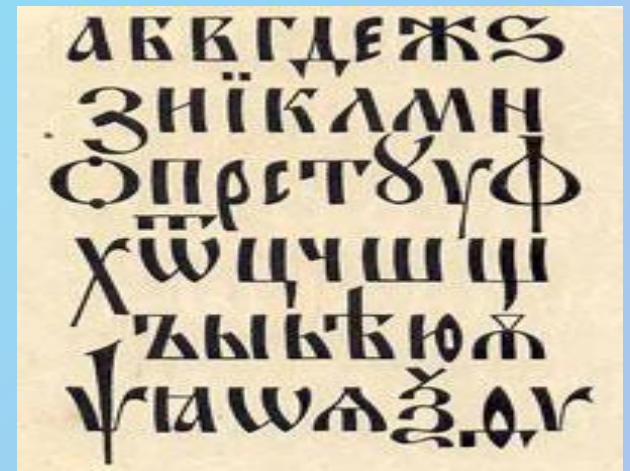 а б в г д е ж ѕ
з и ї к л м н
о п р с т ꙋ у ф
х ѿ ц ч ш щ
ъ ы ь ѣ ю ѫ
ѱ ꙗ ѡ ѧ ѯ ѳ ѵ